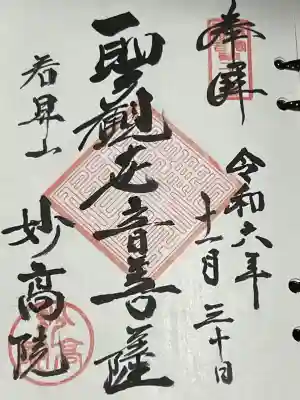 奉拝
令和六年
十一月三十日
聖観世音菩薩
妙高院